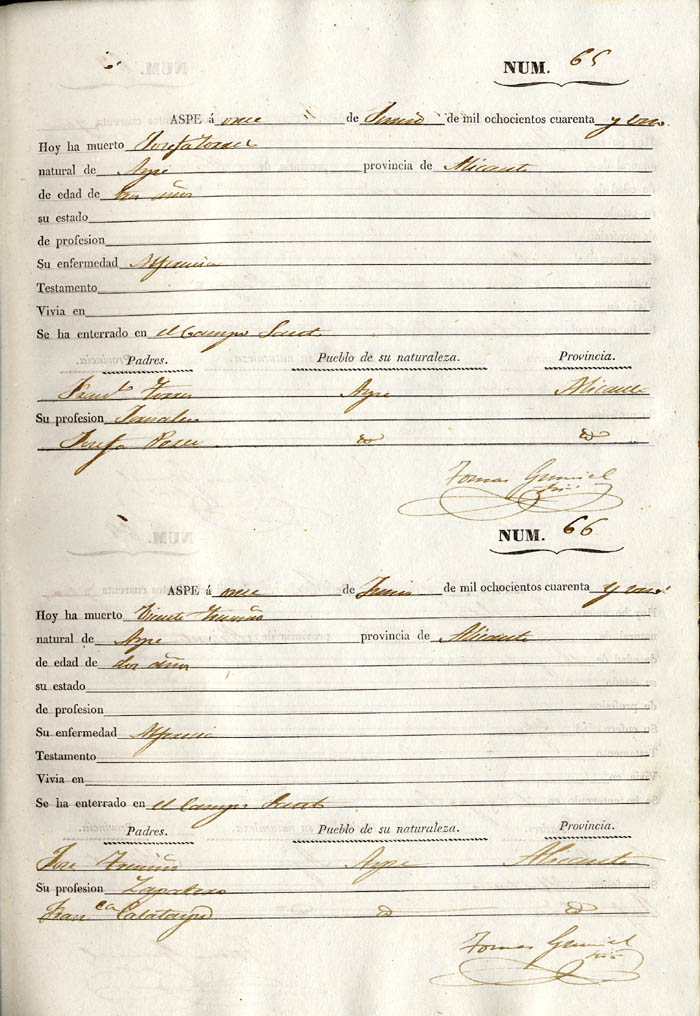 NUM. 65
ASPE á once de Junio de mil ochocientos cuarenta y uno
Hoy ha muerto Josefa Torres
natural de Aspe provincia de Alicante
de edad de años
su estado
de profesion
Su enfermedad Alferecia
Testamento
Vivia en
Se ha enterrado en el Campo Santo
Padres. Pueblo de su naturaleza. Provincia.
Torres Aspe Alicante
Su profesion Jornalero
Josefa
Tomas Gumiel
NUM. 66
ASPE á once de Junio de mil ochocientos cuarenta y uno
Hoy ha muerto
natural de Aspe provincia de Alicante
de edad de dos años
su estado
de profesion
Su enfermedad Alferecia
Testamento
Vivia en
Se ha enterrado en el Campo Santo
Padres. Pueblo de su naturaleza. Provincia.
Jose Aspe Alicante
Su profesion Zapatero
Franca Calatayud
Tomas Gumiel